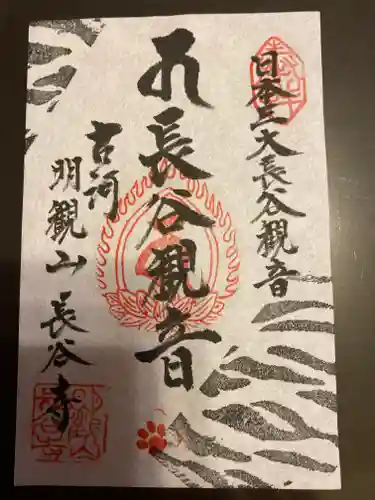 日本三大長谷観音
長谷観音
古河
明観山 長谷寺